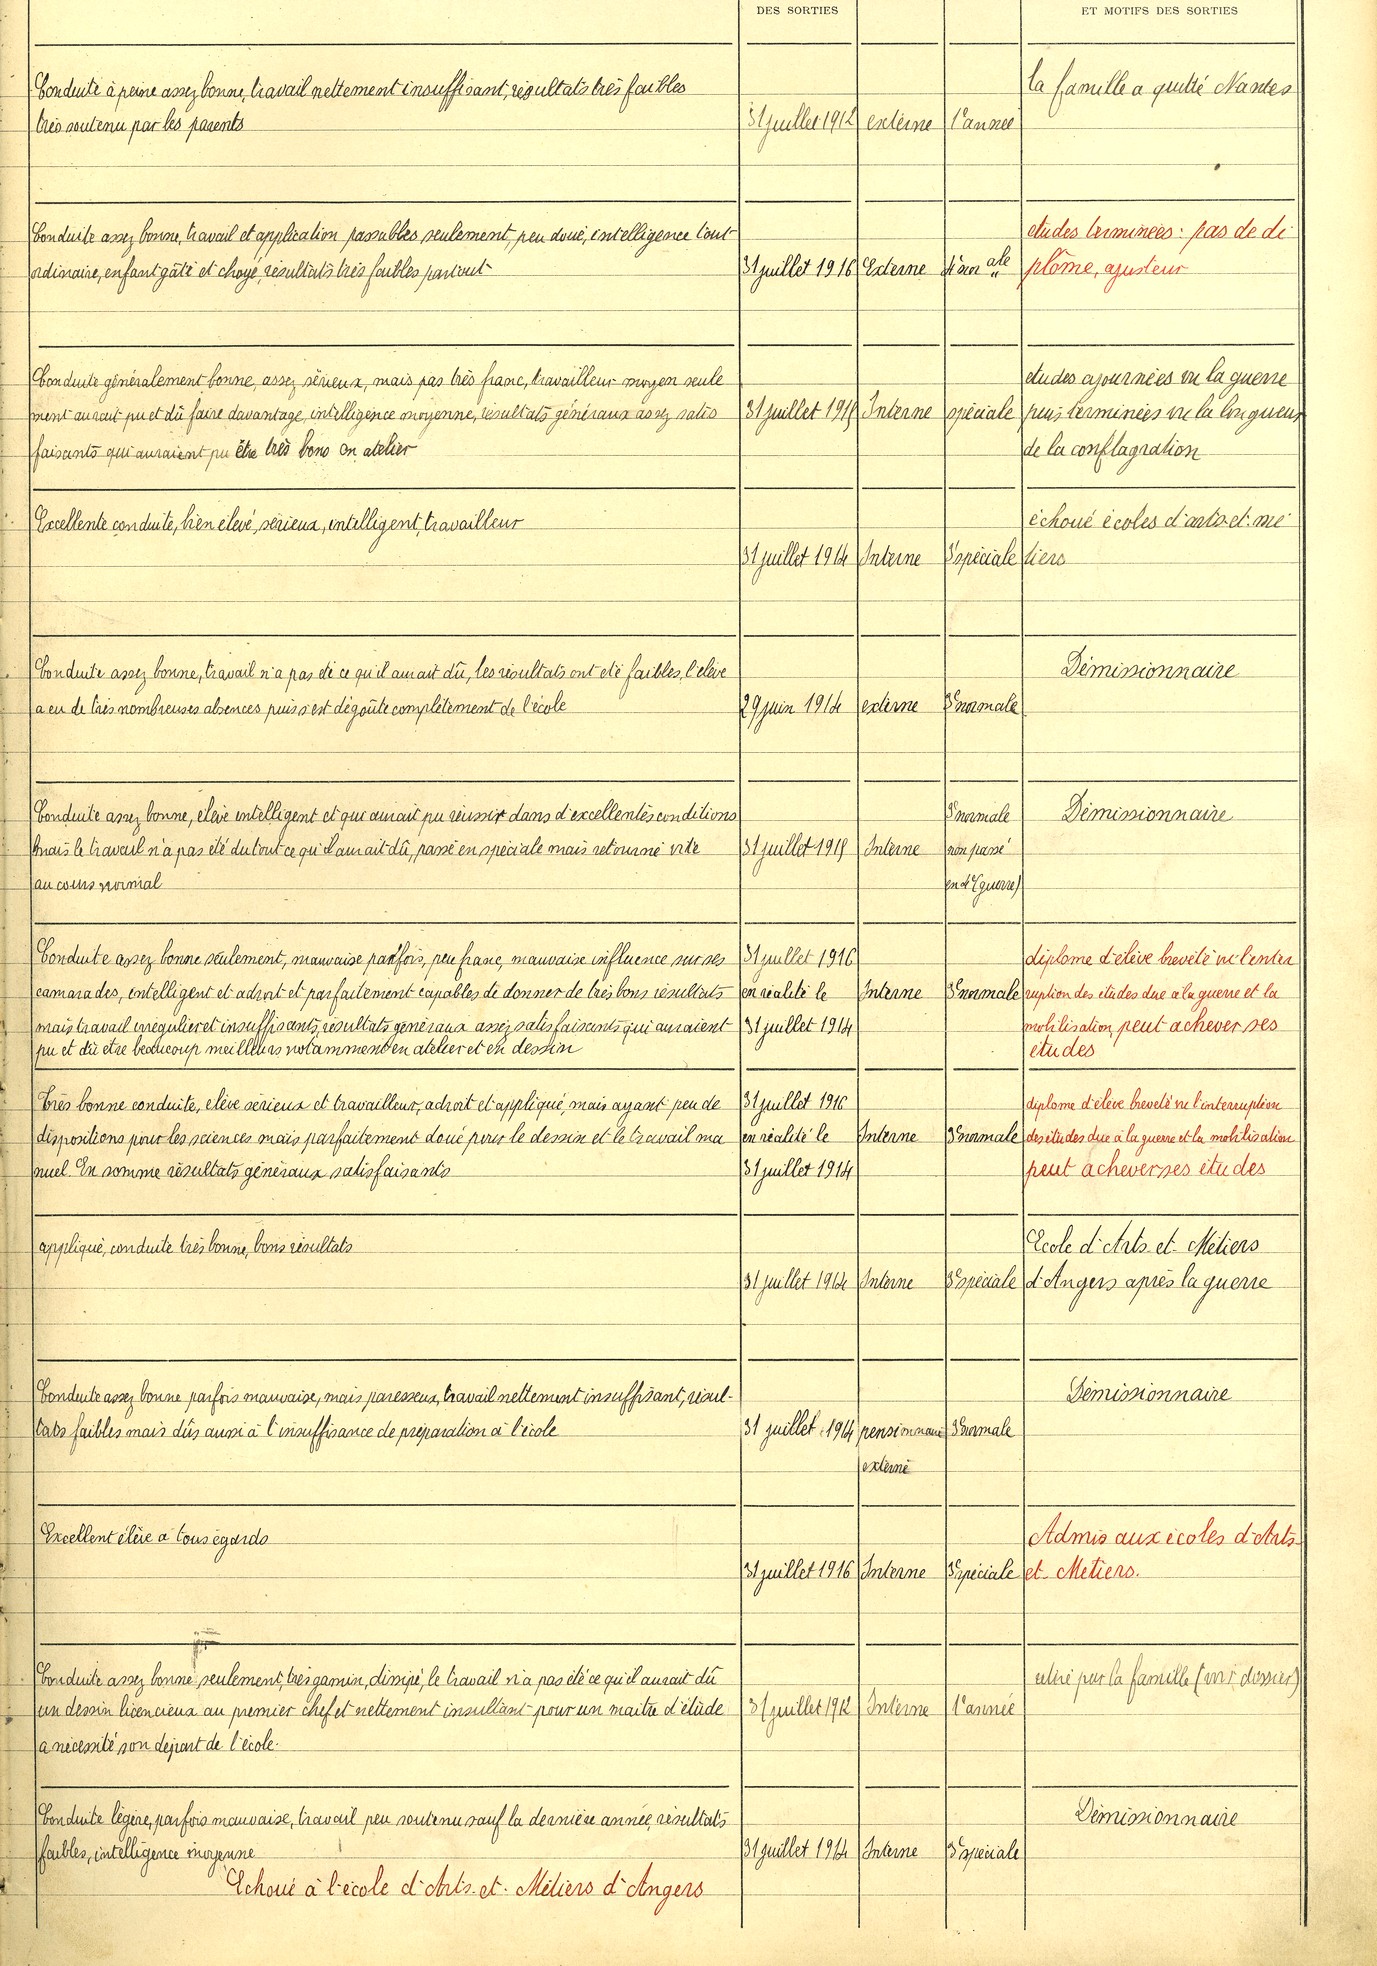 DES SORTIES
ET MOTIFS DES SORTIES
Conduite à peine assez bonne, travail nettement insuffisant, résultats très faibles
très soutenu par les parents
31 juillet 1912
externe
1e année
la famille a quitté Nantes
Conduite assez bonne, travail et application passables seulement, peu doué, intelligence tout
ordinaire, enfant gâté et choyé, résultats très faibles partout
31 juillet 1916
Externe
études terminées : pas de di
plôme, ajusteur
Conduite généralement bonne, assez sérieux, mais pas très franc, travailleur moyen seule
ment aurait pu et dû faire davantage, intelligence moyenne, résultats généraux assez satis
faisants qui auraient pu être très bons en atelier
31 juillet 1915
Interne
spéciale
études ajournées vu la guerre
puis terminées vu la longueur
de la conflagration
Excellente conduite, bien élevé, sérieux, intelligent, travailleur
31 juillet 1914
Interne
3e spéciale
échoué écoles d'arts-et-mé
tiers
Conduite assez bonne, travail n'a pas été ce qu'il aurait dû, les résultats ont été faibles, l'élève
a eu de très nombreuses absences puis s'est dégoûté complètement de l'école
29 juin 1914
externe
3e normale
Démissionnaire
Conduite assez bonne, élève intelligent et qui aurait pu réussir dans d'excellentes conditions
mais le travail n'a pas été du tout ce qu'il aurait dû, passé en spéciale mais retourné vite
au cours normal
31 juillet 1915
Interne
3e normale
non passé
en 4e (guerre)
Démissionnaire
Conduite assez bonne seulement, mauvaise parfois, peu franc, mauvaise influence sur ses
camarades, intelligent et adroit et parfaitement capables de donner de très bons résultats
mais travail irrégulier et insuffisants, résultats généraux assez satisfaisants qui auraient
pu et dû être beaucoup meilleurs notamment en atelier et en dessin
31 juillet 1916
en réalité le
31 juillet 1914
Interne
3e normale
diplome d'élève breveté vu l'inter
ruption des études due à la guerre et la
mobilisation, peut achever ses
études
Très bonne conduite, élève sérieux et travailleur, adroit et appliqué, mais ayant peu de
dispositions pour les sciences mais parfaitement doué pour le dessin et le travail ma
nuel. En somme résultats généraux satisfaisants
31 juillet 1916
en réalité le
31 juillet 1914
Interne
3e normale
diplome d'élève breveté vu l'interruption
des études due à la guerre et la mobilisation
peut achever ses études
appliqué, conduite très bonne, bons résultats
31 juillet 1914
Interne
3e spéciale
Ecole d'Arts-et-Métiers
d'Angers après la guerre
Conduite assez bonne parfois mauvaise, mais paresseux, travail nettement insuffisant, résul-
tats faibles mais dûs aussi à l'insuffisance de préparation à l'école
31 juillet 1914
pensionnaire
externe
3e normale
Démissionnaire
Excellent élève à tous égards
31 juillet 1916
Interne
3e spéciale
Admis aux écoles d'Arts-
et-Métiers.
Conduite assez bonne seulement, très gamin, dissipé, le travail n'a pas été ce qu'il aurait dû
un dessin licencieux au premier chef et nettement insultant pour un maitre d'étude
a nécessité son départ de l'école.
31 juillet 1912
Interne
1e année
retiré par la famille (voir dossier)
Conduite légère, parfois mauvaise, travail peu soutenu sauf la dernière année, résultats
faibles, intelligence moyenne
Echoué à l'école d'Arts-et-Métiers d'Angers
31 juillet 1914
Interne
3e spéciale
Démissionnaire